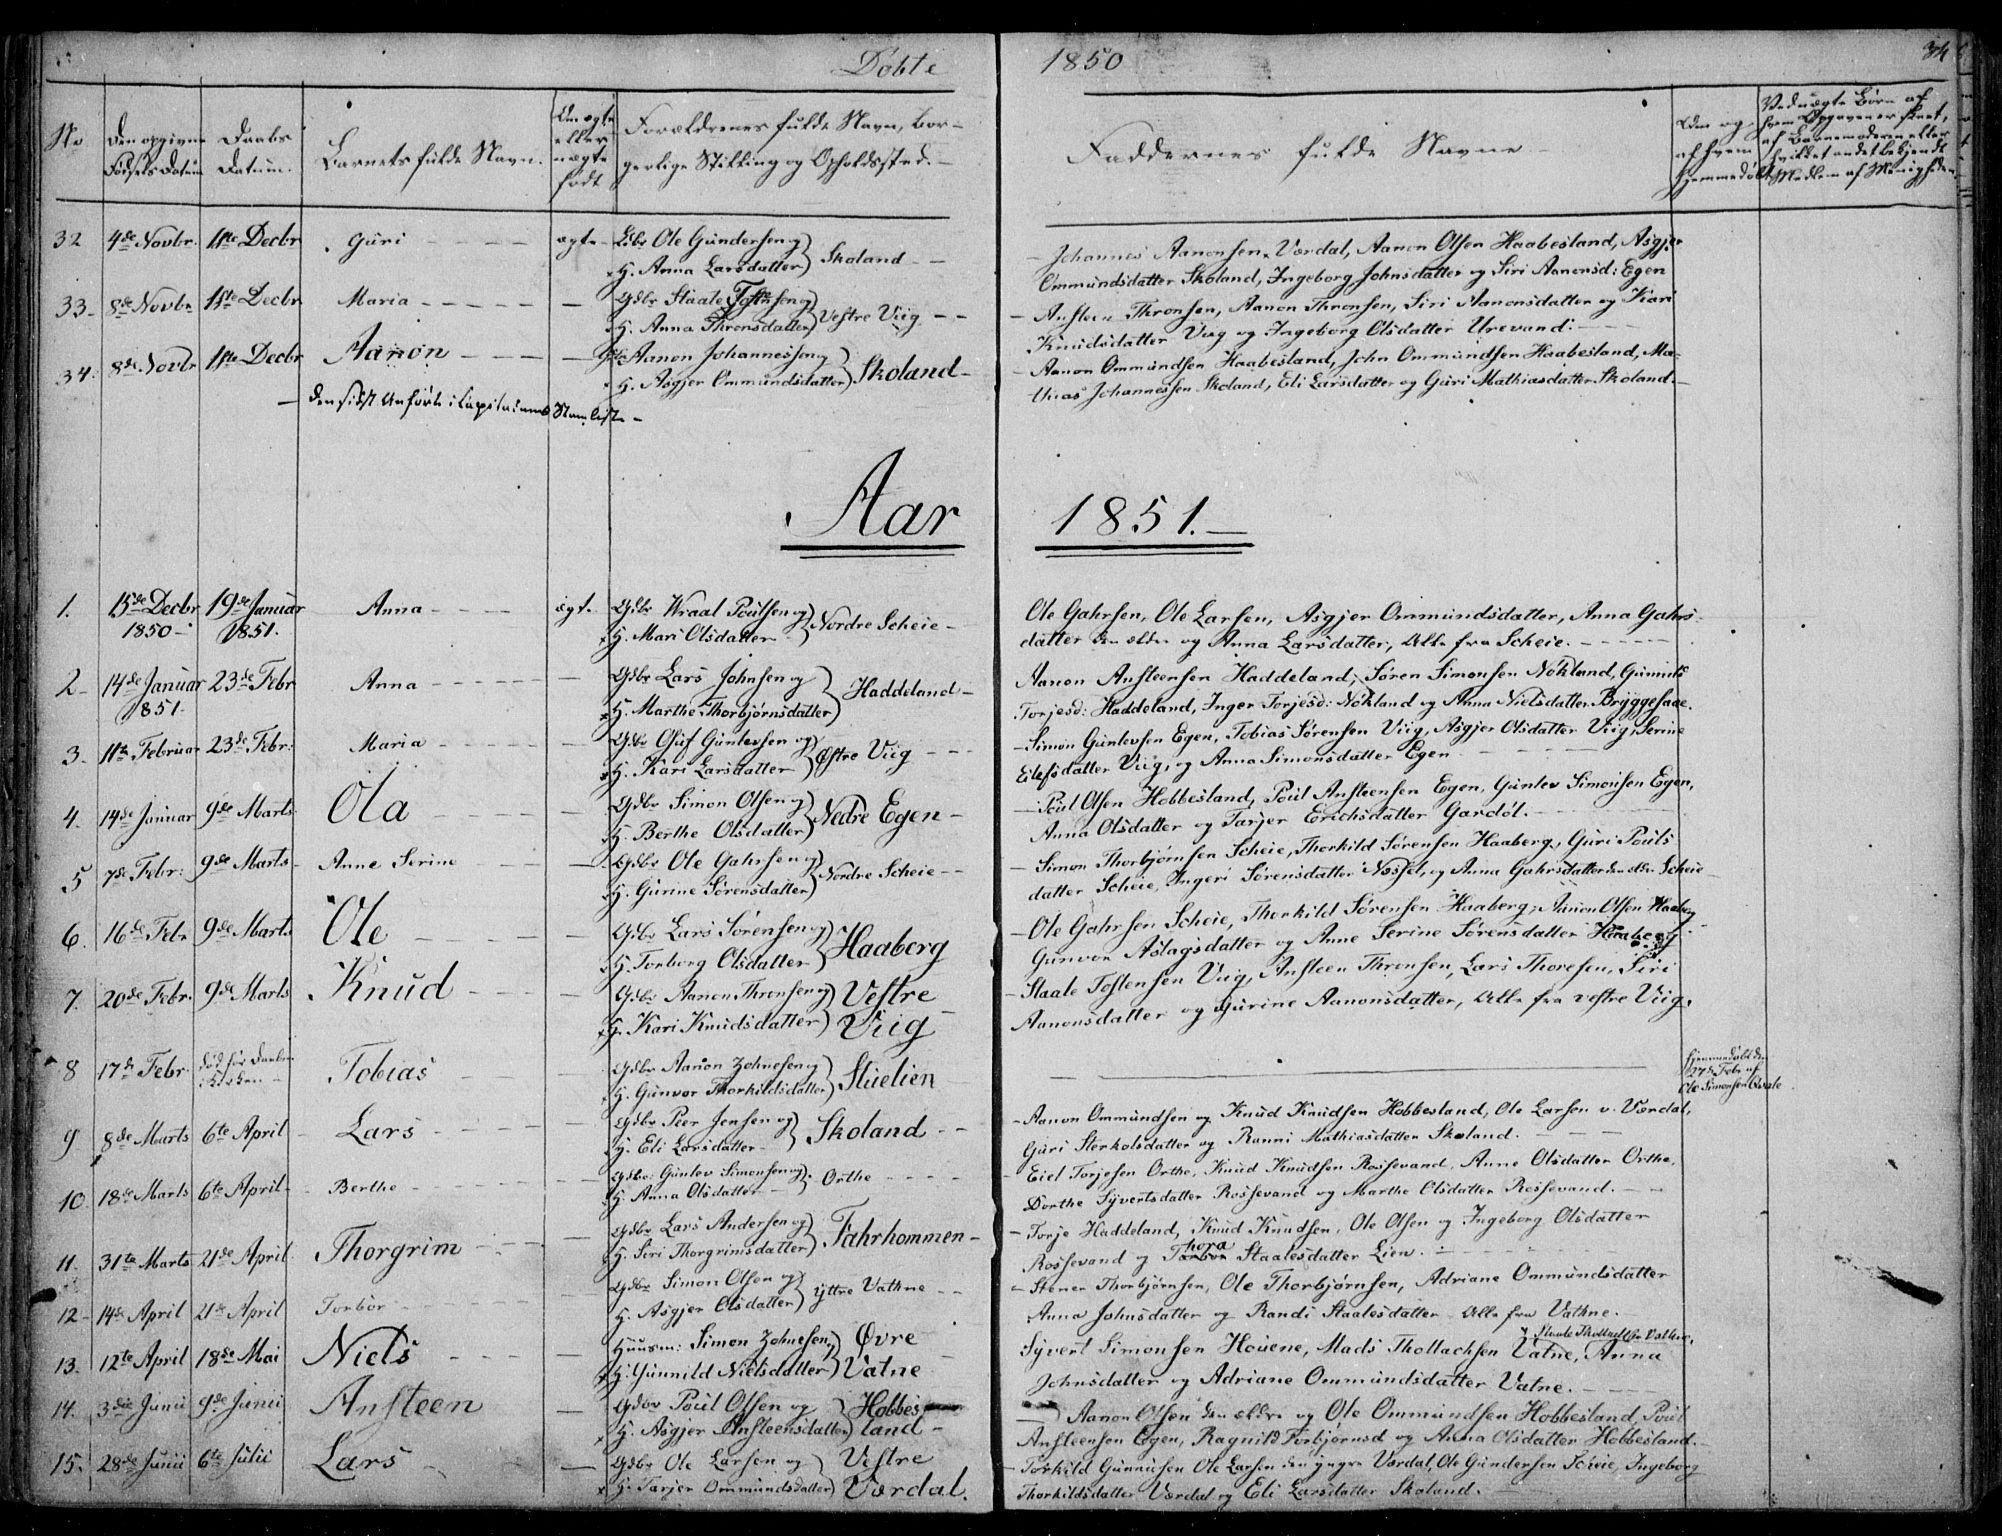 Døbte 1850 34
No
Den opgivne Fødsels Datum
Daabs Datum.
Barnets fulde Navn.
Om ægte eller uægte født
Forældrenes fulde Navn, Bor-
gerlige Stilling og Opholdssted.
Faddernes fulde Navne
Om og af hvem hjemmedøbt
Ved uægte Børn af
hvem Opgaven er skeet,
af Barnemoderen eller
hvilket andet bekjendt
Medlem af Menigheden
32 4de Novbr. 11te Decbr Guri ægte Gdbr Ole Gundersen og
H. Anna Larsdatter Skoland
Johannes Aanonsen Værdal, Aanon Olsen Haabesland, Asgjer
Ommundsdatter Skoland, Ingeborg Johnsdatter og Siri Aanonsd: Egen
33 8de Novbr 11te Decbr Maria Gdbr Staale Tostensen og
H. Anna Thronsdatter Vestre Viig
Ansteen Thronsen, Aanon Thronsen, Siri Aanonsdatter og Kari
Knudsdatter Viig og Ingeborg Olsdatter Urevand.
34 8de Novbr 11te Decbr Aanon Gdbr Aanon Johannessen og
H. Asgjer Ommundsdatter Skoland
Aanon Ommundsen Haabesland, John Ommundsen Haabesland, Ma-
thias Johannessen Skoland, Eli Larsdatter og Guri Mathiasdatter Skoland.
den sidst Anførte i Capitainens Navneliste
Aar 1851.
1. 15de Decbr 19de Januar Anna ægte Gdbr Wraal Poulsen og
1850 1851. H. Mari Olsdatter Nordre Scheie
Ole Gahrsen, Ole Larsen, Asgjer Ommundsdatter, Anna Gahrs-
datter den ældre og Anna Larsdatter, Alle fra Scheie.
2 14de Januar 23de Febr Anna Gdbr Lars Johnsen og
1851. H. Marthe Thorbjørnsdatter Haddeland
Aanon Ansteensen Haddeland, Søren Simonsen Nökland, Gunnild
Torjesd: Haddeland, Inger Torjesd: Nökland og Anna Nielsdatter Bryggesaae.
3. 11te Februar 23de Febr: Maria Gdbr Oluf Gunlevsen og
H. Kari Larsdatter Østre Viig
Simon Gunlevsen Egen, Tobias Sørensen Viig, Asgjer Olsdatter Viig, Serine
Eilefsdatter Viig, og Anna Simonsdatter Egen
4. 14de Januar 9de Marts Ola Gdbr Simon Olsen og
H. Berthe Olsdatter Nedre Egen
Poul Olsen Hobbesland, Poul Ansteensen Egen, Gunlev Simonsen Egen,
Anna Olsdatter og Tarjer Erichsdatter Gardöl.
5 7de Febr: 9de Marts Anne Serine Gdbr Ole Gahrsen og
H. Gurine Sørensdatter Nordre Scheie
Simon Thorbjørnsen Scheie, Thorkild Sørensen Haaberg, Guri Pouls-
datter Scheie, Ingeri Sørensdatter Nössel, og Anna Gahrsdatter den ældre Scheie
6. 16de Febr 9de Marts Ole Gdbr Lars Sørensen og
H. Torborg Olsdatter Haaberg
Ole Gahrsen Scheie, Thorkild Sørensen Haaberg, Aanon Olsen Haaberg
Gunvor Aslagsdatter og Anne Serine Sørensdatter Haaberg
7. 20de Febr. 9de Marts Knud Gdbr Aanon Thronsen og
H. Kari Knudsdatter Vestre Viig
Staale Tostensen Viig, Ansteen Thronsen, Lars Thoresen, Siri
Aanonsdatter og Gurine Aanonsdatter, Alle fra vestre Viig.
8 17de Febr død før Daaben i Kirken Tobias Gdbr Aanon Johnesen og
H. Gunvor Thorkildsdatter Stuelien
hjemmedøbt den
17de Febr af
Ole Simonsen
9 8de Marts 6te April Lars Gdbr Peer Jensen og
H. Eli Larsdatter Skoland
Aanon Ommundsen og Knud Knudsen Hobbesland, Ole Larsen v. Værdal,
Guri Sterkolsdatter og Ranni Mathiasdatter Skoland.
10 18de Marts 6te April Berthe Gdbr: Gunlev Simonsen og
H. Anna Olsdatter Orthe
Eiel Torjesen Orthe, Knud Knudsen Rossevand, Anne Olsdatter Orthe,
Dorthe Syvertsdatter Rossevand og Marthe Olsdatter Rossevand.
11. 31te Marts 21de April Thorgrim Gdbr Lars Andersen og
H. Siri Thorgrimsdatter Fahrhommen
Torje Haddeland, Knud Knudsen, Ole Olsen og Ingeborg Olsdatter
Rossevand og Thora Staalesdatter Lien.
12 14de April 21de April Torbor Gdbr Simon Olsen og
H. Asgjer Olsdatter Yttre Vathne
Stener Thorbjørnsen, Ole Thorbjørnsen, Adriane Ommundsdatter
Anna Johnsdatter og Randi Staalesdatter Alle fra Vathne.
13. 12te April 18de Mai Niels Huusm: Simon Johnesen og
H. Gunnild Nielsdatter Øvre Vatne
Syvert Simonsen Houene, Mads Thollachsen Vatne, Anna
Johnsdatter og Adriane Ommundsdatter Vatne.
14. 3die Junii 9de Junii Ansteen Gdbr Poul Olsen og
H. Asgjer Ansteensdatter Hobbesland
Aanon Olsen den ældre og Ole Ommundsen Hobbesland, Poul
Ansteensen Egen, Ragnild Torbjørnsd og Anna Olsdatter Hobbesland.
15. 28de Junii 6te Julii Lars Gdbr Ole Larsen og
H. Tarjer Ommundsdatter Vestre Værdal.
Torkild Gunnufsen Ole Larsen den yngre Værdal, Ole Gundersen Scheie, Ingeborg
Thorkildsdatter Værdal og Eli Larsdatter Skoland.